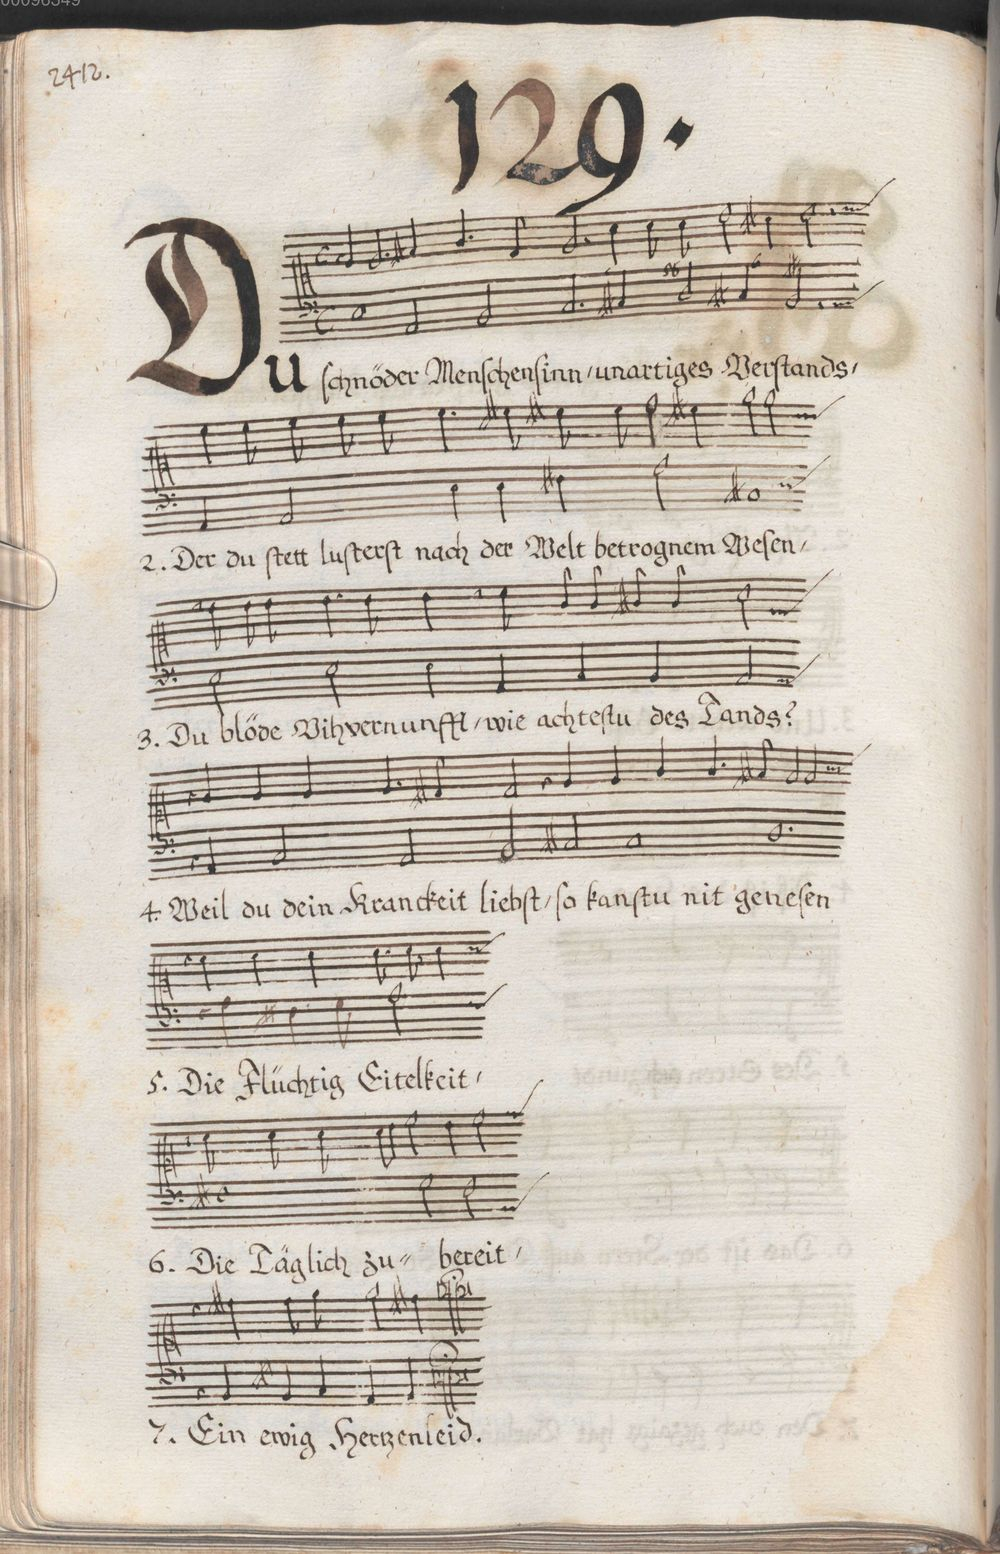 00096349
2412.
129.
Du schnöder Menschensinn/unartiges Verstands/
2. Der du stett lusterst nach der Welt betrognem Wesen/
3. Du blöde Vihvernunfft/wie achtestu des Tands?
4. Weil du dein Kranckeit liebst/so kanstu nit genesen
5. Die Flüchtig Eitelkeit/
6. Die Täglich zu⸗ bereit/
7. Ein ewig Hertzenleid.